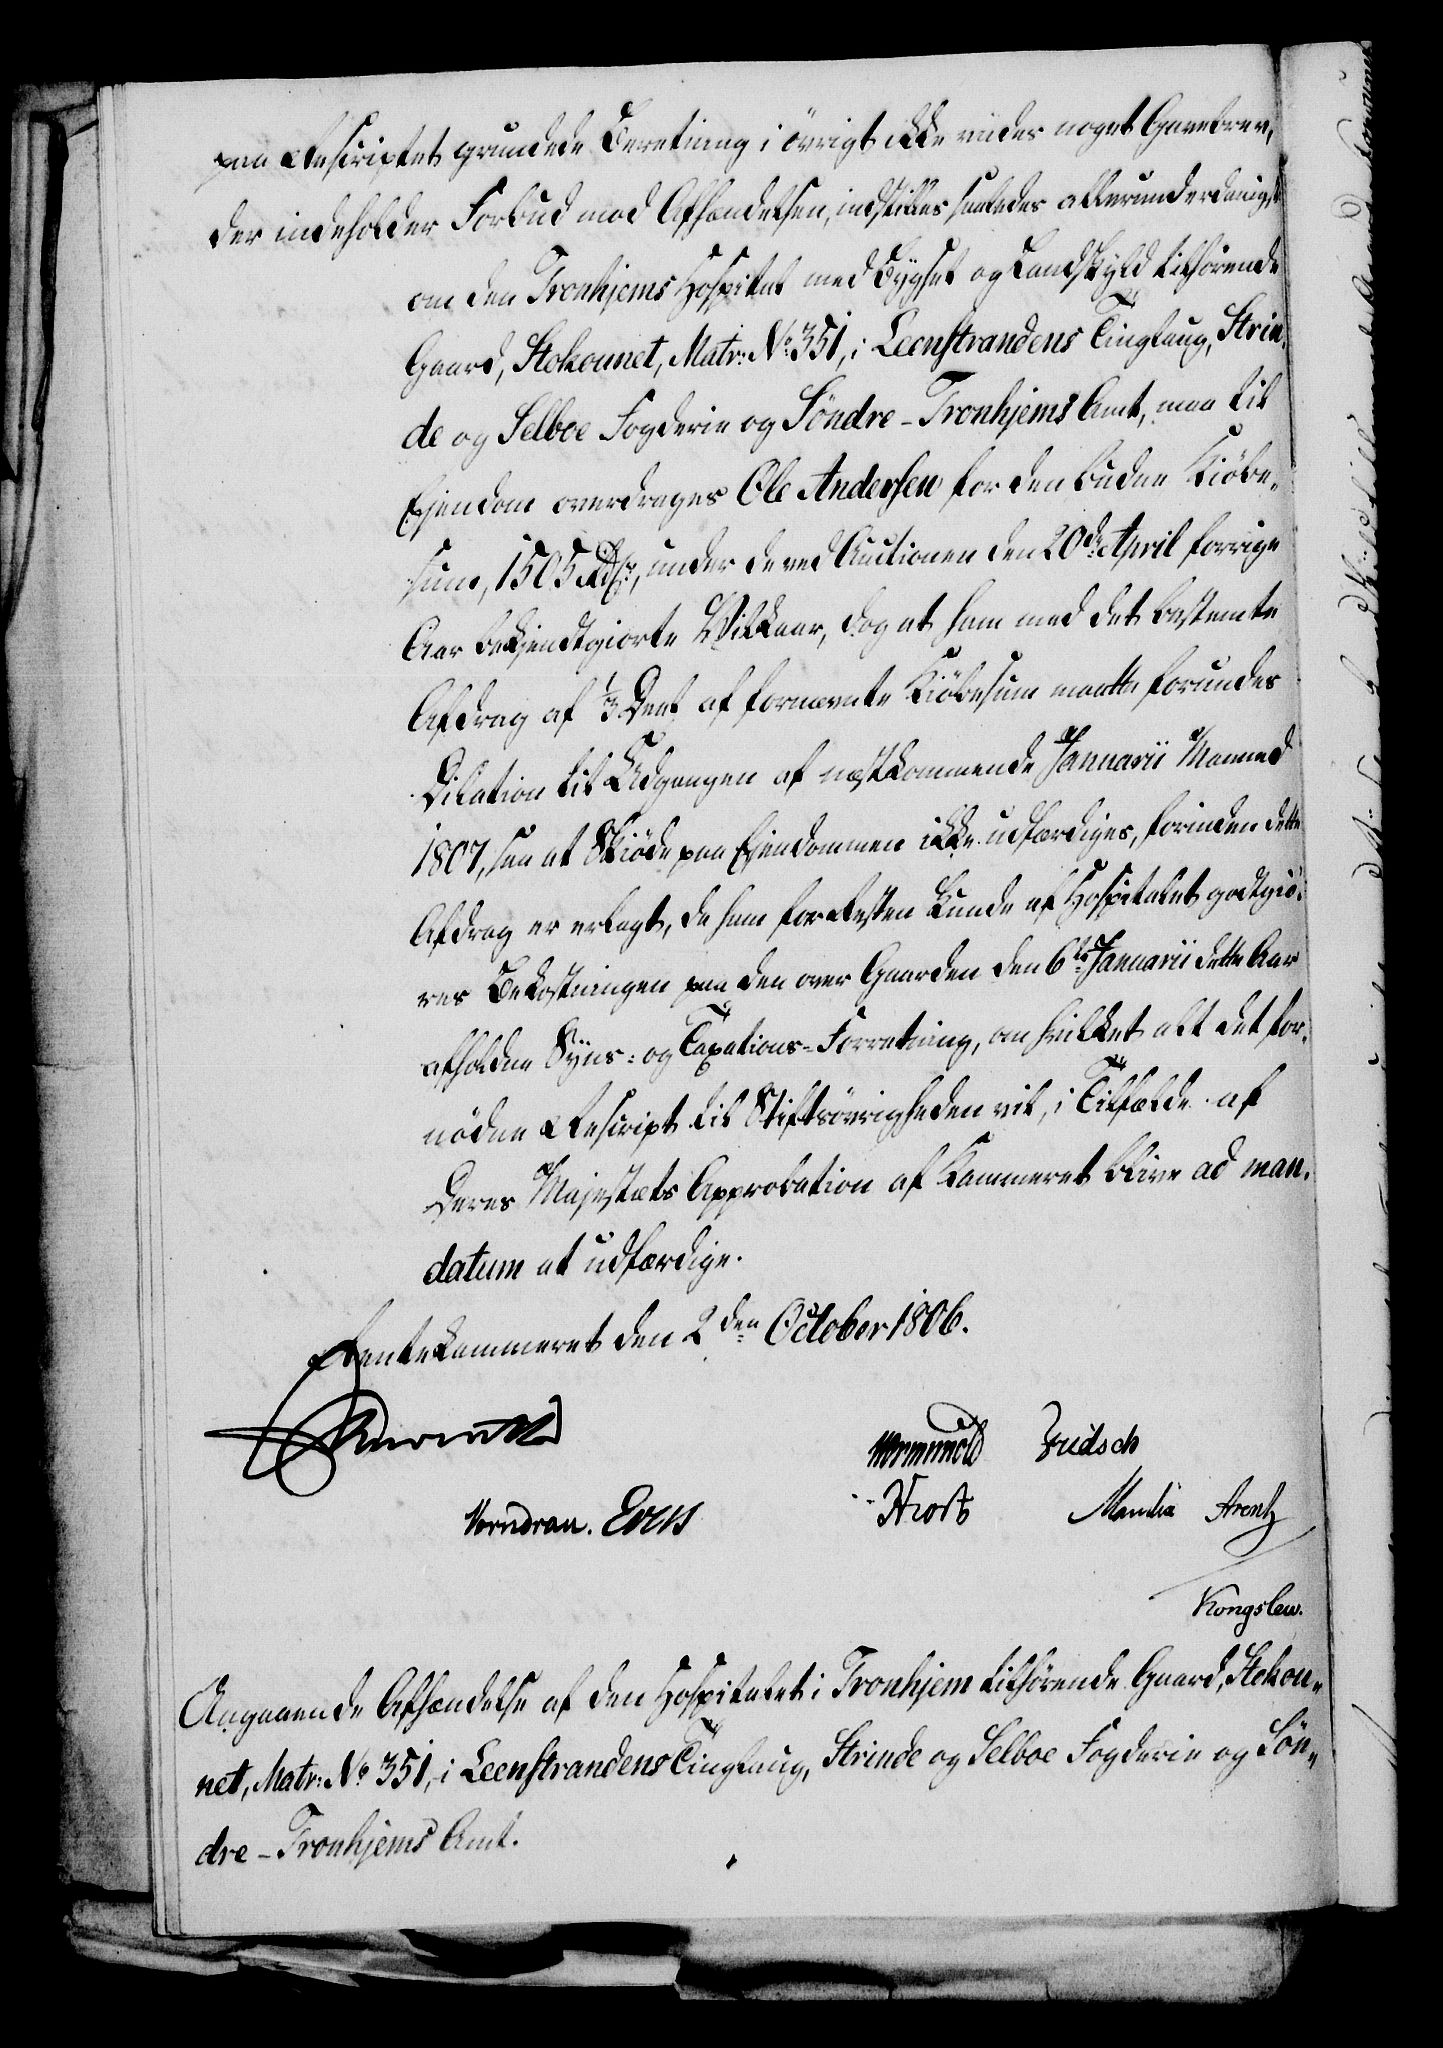 paa Rescriptet grundede Beretning i övrigt ikke vides noget Gavebrev,
der indeholder Forbud mod Afhændelsen, indstilles saaledes allerunderdanigst
om den Tronhjems Hospital med Bygsel og Landskyld tilhørende
Gaard, Stokounet, Matr: No. 351, i Leenstrandens Tinglaug, Strin-
de og Selboe Fogderie og Söndre-Tronhjems Amt, maa til
Ejendom overdrages Ole Andersen for den budne Kiöbe-
sum, 1505 Rd, under de ved Auctionen den 20de April forrige
Aar bekjendtgiorte Vilkaar, dog at ham med det bestemte
Afdrag af 1/3 Deel af fornævnte Kiöbesum maatte forundes
Dilation til Udgangen af næstkommende Januarii Maaned
1807, saa at Skiöde paa Ejendommen ikke udfærdiges, forinden dette
Afdrag er erlagt, da ham forresten kunde af Hospitalet godtgiö-
res Bekostningen paa den over Gaarden den 6te Januarii dette Aar
afholdne Syns- og Taxations-Forretning, om hvilket alt det for-
nödne Rescript til Stiftsövrigheden vil, i Tilfælde af
Deres Majestæts Approbation af Kammeret blive ad man-
datum at udfærdige.
Rentekammeret den 2den October 1806.
Wormskiold
Hiort
Arentz
Kongslew.
Angaaende Afhændelse af den Hospitalet i Tronhjem tilhørende Gaard, Stokou-
net, Matr: No 351, i Leenstrandens Tinglaug, Strinde og Selboe Fogderie og Sön-
dre-Tronhjems Amt.